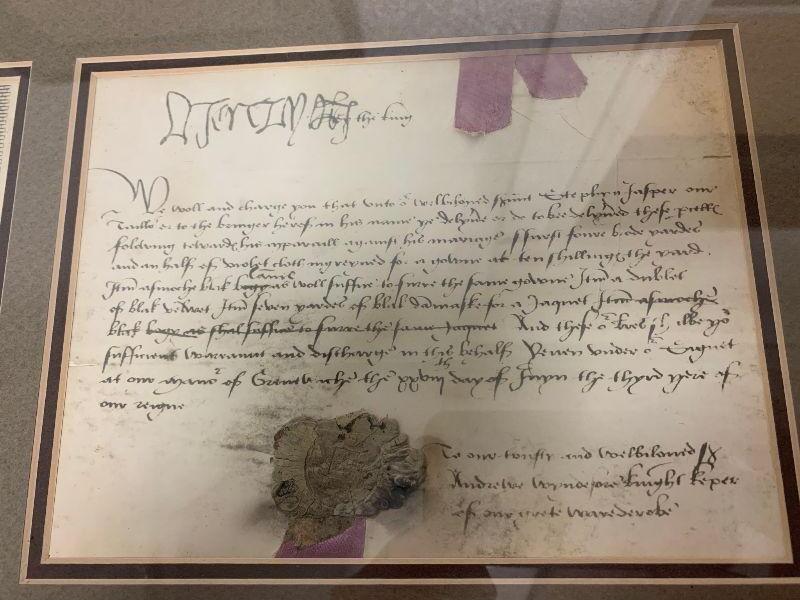 Henry by the king
We woll and charge you that unto oʳ welbiloved ſʳvnt Stephyn Jasper our
Taillor or to the bringer herof in his name ye delyvʳ or do to bee delyvʳed these pcells
folowing towardꝭ his apparaill against his mariage Furst foure brode yardes
and an half of violet cloth ingreyned for a gowne at ten shillingꝭ the yard.
Itm̄ asmoche blak Lamb as woll suffise to furre the same gowne Itm̄ a dublet
of blak velwet. Itm̄ seven yardes of blak damaske for a Jaquet Itm̄ asmoche
blak bogy as shal suffice to furre the same Jaquet And these oʳ lr̄es shal be yoʳ
sufficient warraunt and discharge in this behalf. Yeven under oʳ Signet
at our manoʳ of Grenewiche the xxviijᵗʰ day of Juyn the thyrd yere of
our reigne
To our trusty and welbiloved Sʳ
Andrewe Wyndesore knight keper
of our grete warderobe